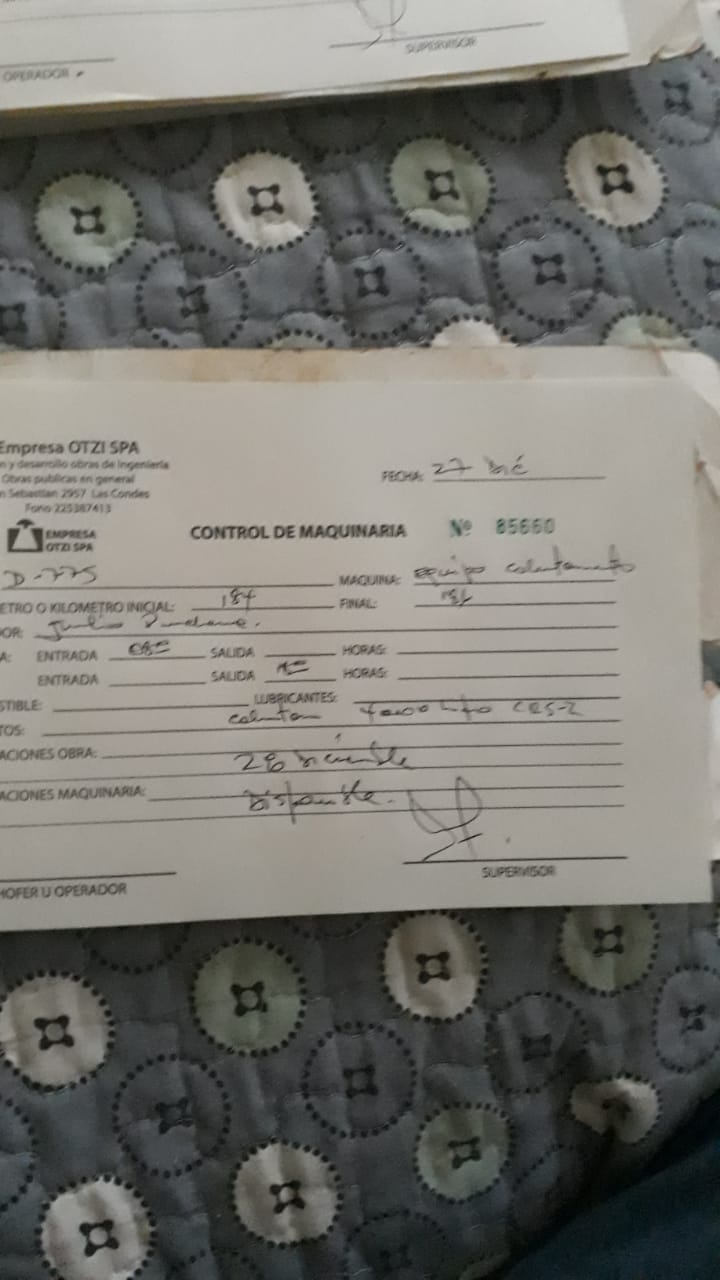 OPERADOR
SUPERVISOR
Empresa OTZI SPA
n y desarrollo obras de Ingeniería
Obras publicas en general
n Sebastian 2957 Las Condes
Fono 225387413
FECHA: 27 Dic
EMPRESA
OTZI SPA
CONTROL DE MAQUINARIA Nº 85660
D-775 MAQUINA: Equipo calentamento
ETRO O KILOMETRO INICIAL: 184 FINAL:
OR: Julio
A: ENTRADA 08 SALIDA HORAS:
ENTRADA SALIDA HORAS:
STIBLE: LUBRICANTES:
TOS: CRS-2
ACIONES OBRA: 28 Diciembre
ACIONES MAQUINARIA: Disponible.
HOFER U OPERADOR
SUPERVISOR